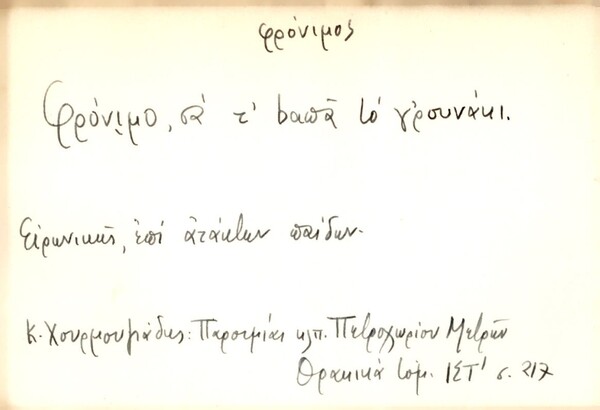 φρόνιμος
Φρόνιμο, σά τ' bαπᾶ τό γ'ρουνάκι.
Εἰρωνικῶς, ἐπί ἀτάκτων παίδων.
Κ. Χουρμουζιάδης: Παροιμίαι κλπ. Πετροχωρίου Μετρῶν
Θρακικά τομ. ΙΣΤ' σ. 217